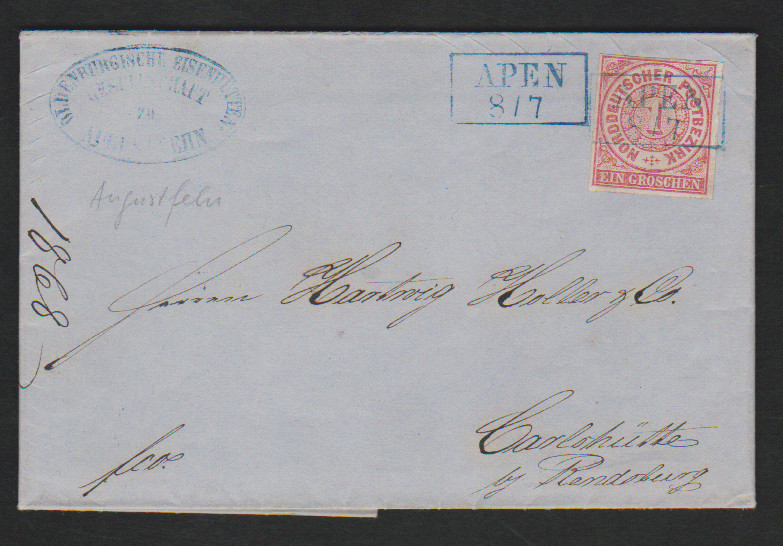 OLDENBURGISCHE EISENHÜTTEN
GESELLSCHAFT
zu
AUGUSTFEHN
Augustfehn
1868
APEN
8/7
NORDDEUTSCHER POSTBEZIRK
1
EIN GROSCHEN
APEN
8/7
Herren Hartwig Holler & Co.
Carlshütte
by Rendsburg
fco.